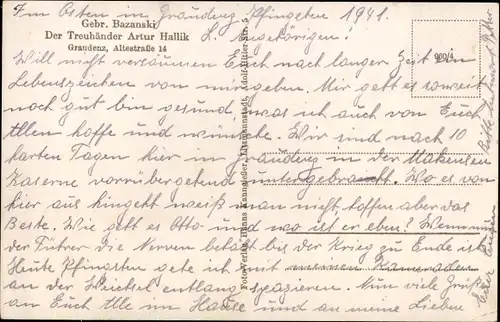 Im Osten in Graudenz Pfingsten 1941.
Gebr. Bazanski
Der Treuhänder Artur Hallik
Graudenz, Altestraße 14
L. Angehörigen!
900/4
Will nicht versäumen Euch nach langer Zeit ein
Lebenszeichen von mir geben. Mir geht es soweit
noch gut bin gesund, was ich auch von Euch
Allen hoffe und wünsche. Wir sind nach 10
harten Tagen hier in Graudenz in der Makensen
Kaserne vorrübergehend untergebracht. Wo es von
hier aus hingeht weiß man nicht, hoffen aber das
Beste. Wie geht es Otto und wo ist er eben? Wenn nur
der Führer die Nerven behält bis der Krieg zu Ende ist
Heute Pfingsten gehe ich mit meinen Kameraden
an der Weichsel entlang spazieren. Nun viele Grüße
an Euch Alle im Hause und an meine Lieben
Foto-Verlag Hans Litzmannstadt, Adolf-Hitler-Str. 5
Bitte
Euer